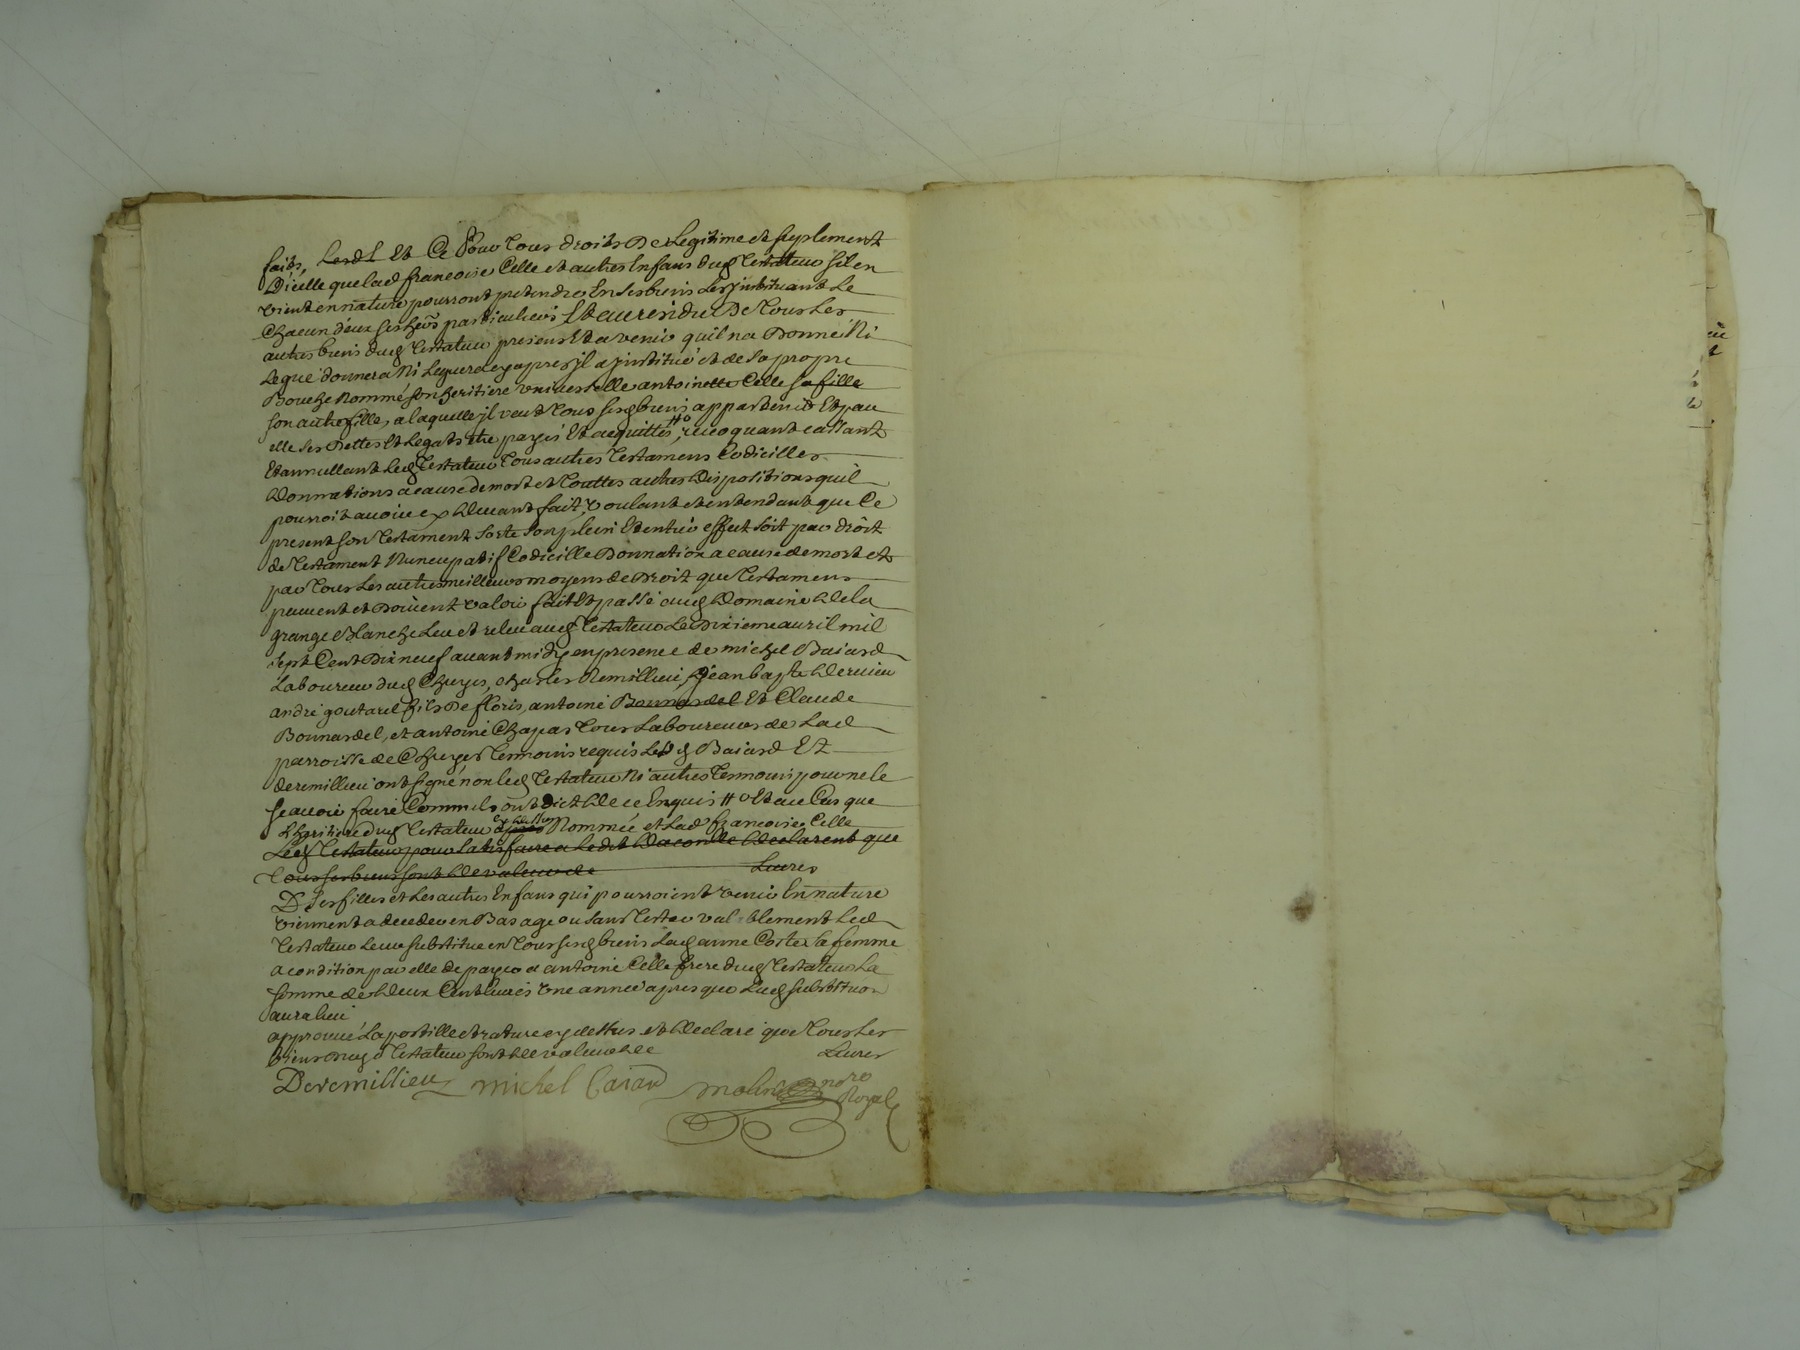 faits, Lesd L Et Ce Pour Tous droits De Legitime et suplement
Dicelle que lad francoise Celle et autres Enfans dud Testateur sil en
vient en nature pourront pretendre En ses biens Les jnstituant Le
Chacun deux ses hers particuliers Et au residu De Tous Les
autres biens dud Testateur presens Et a venir quil na Donné Ni
Legué donnera Ni Leguera cy apres jl a jnstitué et de sa propre
Bouche Nommé son heritiere universelle antoinette Celle sa fille
son autre fille, a laquelle jl veut Tous sesd biens appartenir Et par
elle ses Dettes Et Legats etre payés Et acquittés #o, revoquant cassant
Et annullant Led Testateur Tous autres Testamens Codicilles
Donnations a cause de mort et Touttes autres Dispositions quil
pourroit avoir cy devant fait, voulant et entendant que Ce
present son Testament sorte son plein Et entier effect soit par droit
de Testament Nuncupatif Codicille Donnation a cause de mort et
par Tous Les autres meilleurs moyens de Droit que Testamens
peuvent et Doivent valoir fait Et passé aud Domaine de la
grange Blanche Leu et releu aud Testateur Le Dixieme avril mil
sept Cent Dix neuf avant midy en presence de michel Baiard
Laboureur dud Chuyes, charles Remillieu, jean bapte dervieu
andré goutarel fils De floris, antoine Bonnardel Et Claude
Bonnardel, et antoine Chapas Tous Laboureurs de Lad
parroisse de Chuyes Temoins requis Lesd Baiard Et
deremillieu ont signé non led Testateur Ni autres Temoins pour ne le
scavoir faire Comme ils ont dict de ce Enquis #o Et au Cas que
Lheritiere dud Testateur cy dessus Nommée et Lad francoise Celle
Led Testateur pour satisfaire a Ledit declarent que
Tous ses biens sont de valeur de Livres
D ses filles et Les autres Enfans qui pourroient venir En nature
viennent a deceder en Bas age ou sans Tester valablement Led
Testateur Leur substitue en Tous sesd biens Lad anne Coste sa femme
a condition par elle de payer a antoine Celle frere dud Testateur La
somme de Deux Cent Livres une année apres que Lad substituon
aura lieu
approuvé La postille et rature cy dessus et Declaré que Tous Les
biens dud Testateur sont de valeur de Livres
Deremillieu michel Baiard molin nore
Royal